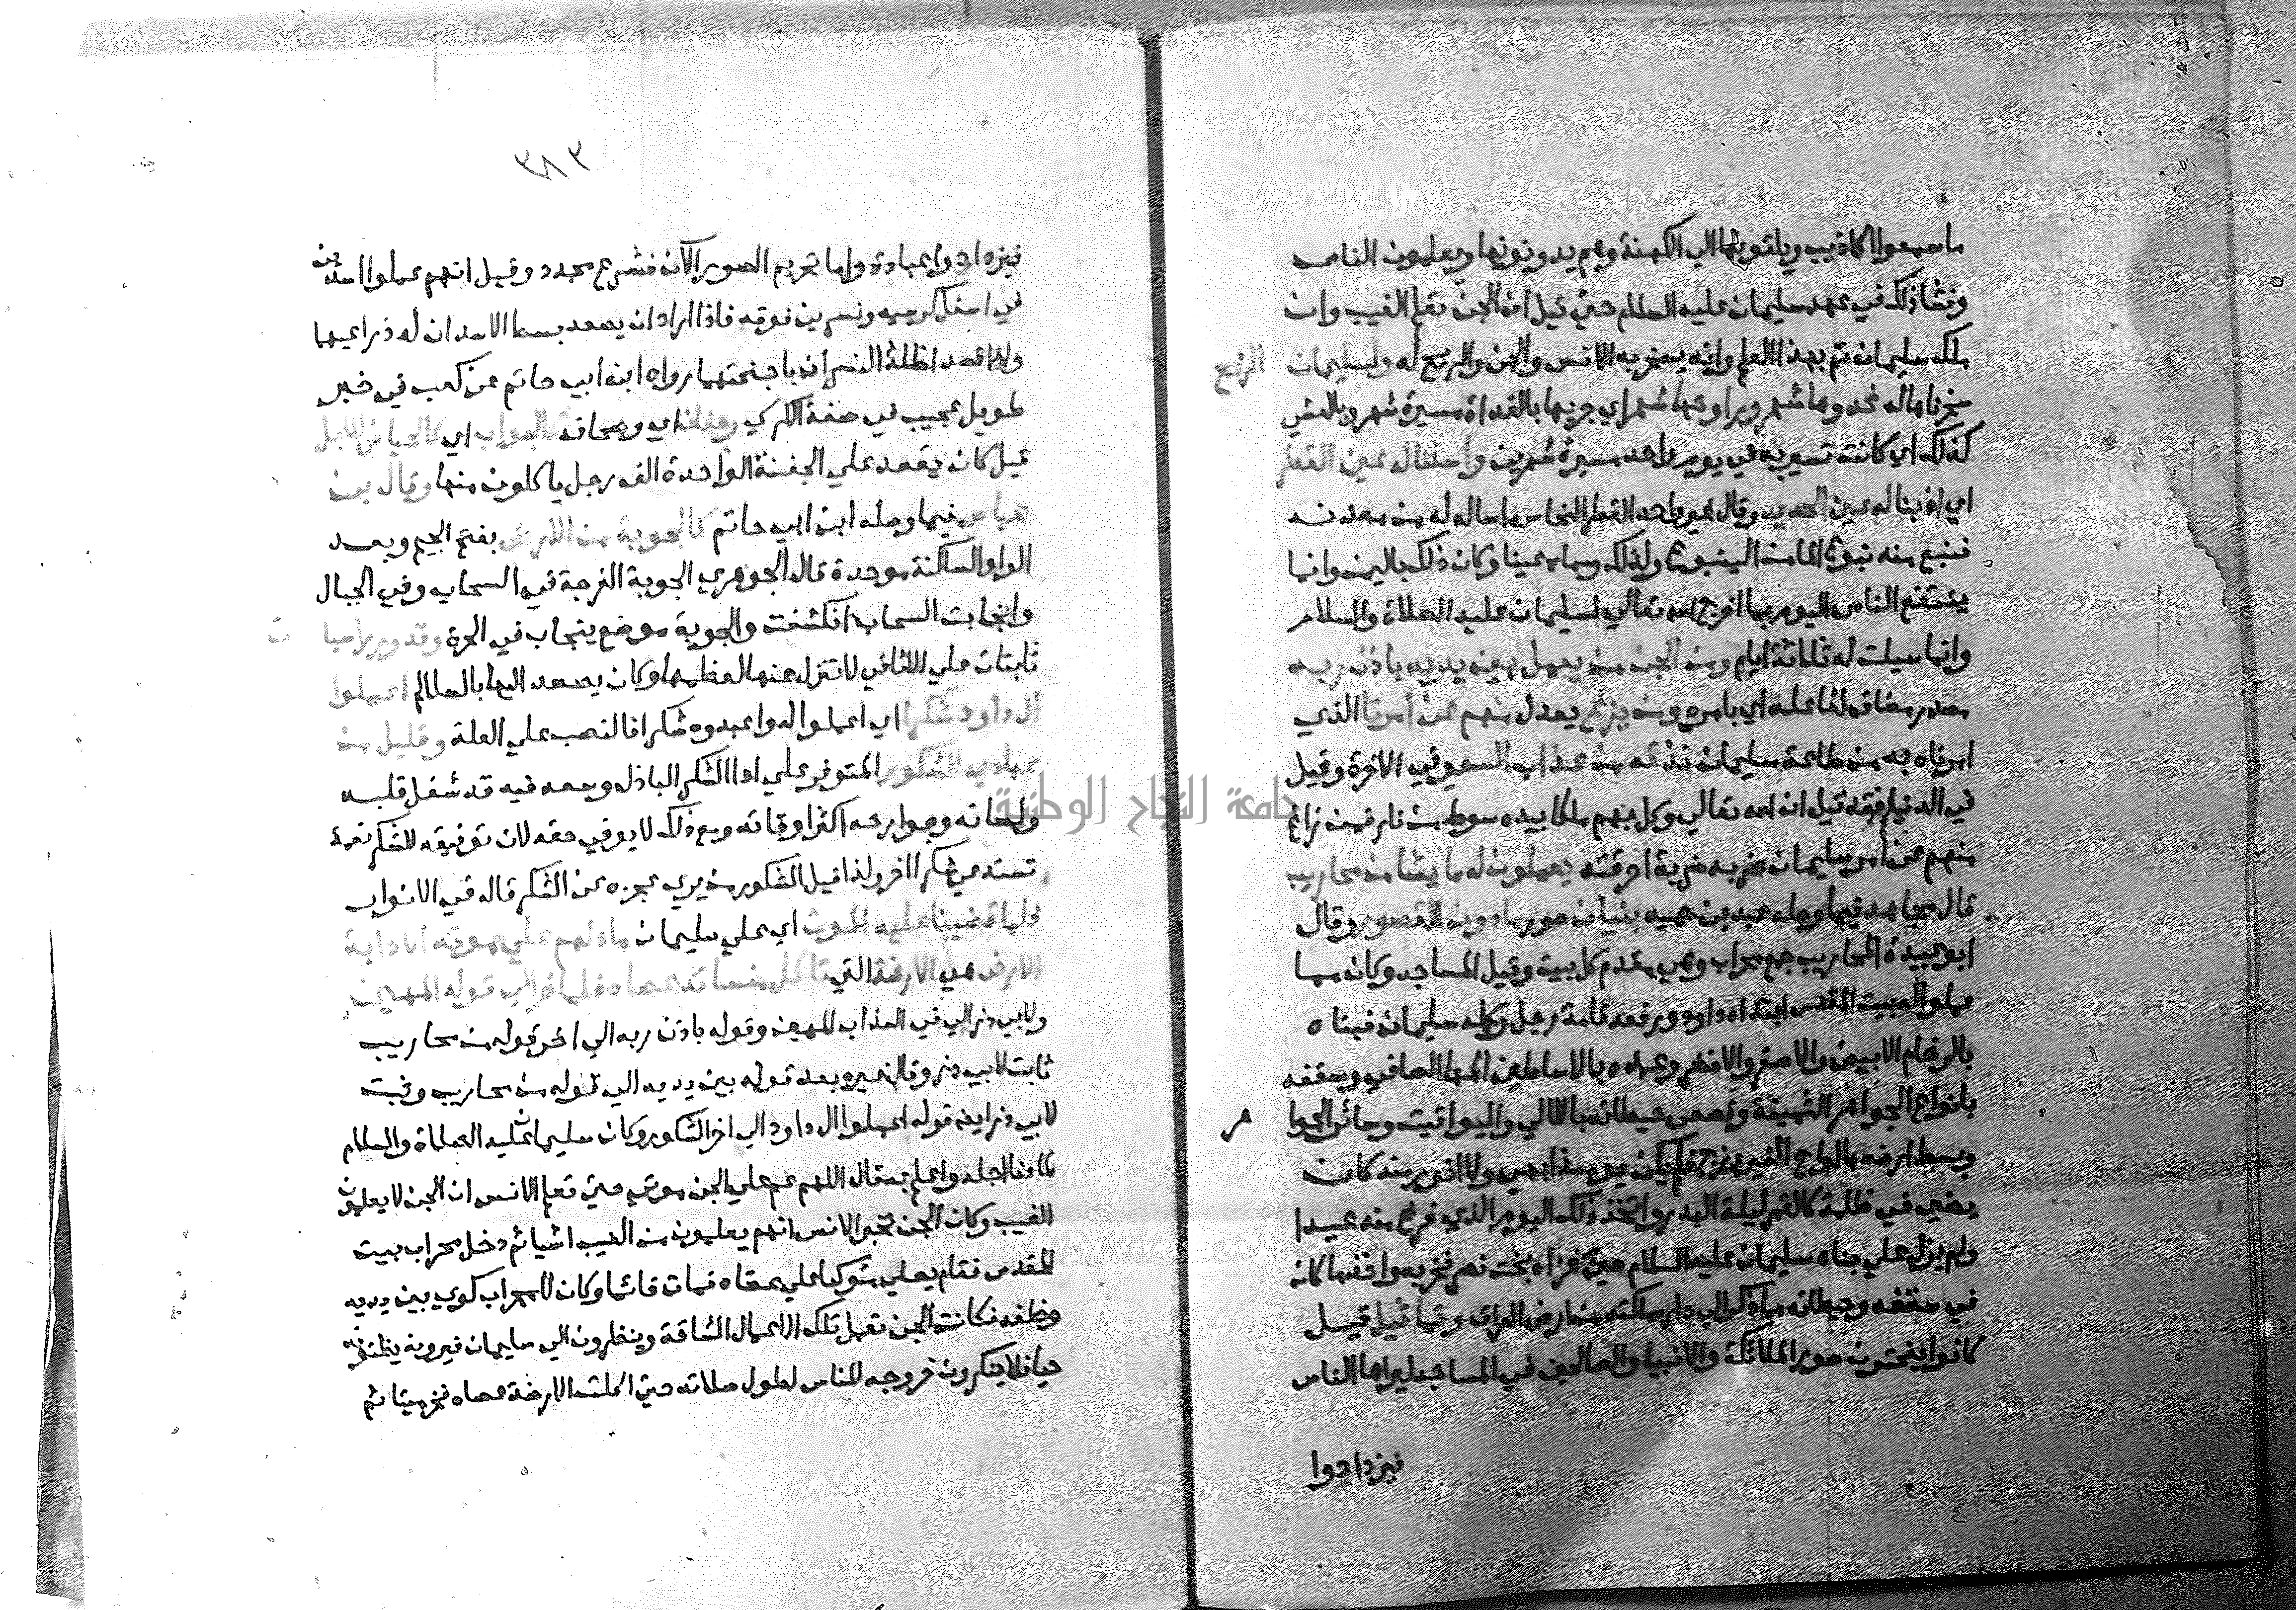 ما سمعوا اكاذيب ويلقونها الي الكهنة وهم يدونونها ويعلمون الناس
وفشا ذلك في عهد سليمان عليه السلام حتي قيل ان الجن تعلم الغيب وان
ملك سليمان تم بهذا العلم وانه يسخر به الانس والجن والريح له ولسليمان الريح
سخرناها له غدوها شهر ورواحها شهر اي جريها بالغداة مسيرة شهر وبالعشي
كذلك اي كانت تسير به في يوم واحد مسيرة شهرين واسلنا له عين القطر
اي اذبنا له عين الحديد وقال غير واحد القطر النحاس اساله له من معدنه
فنبع منه نبوع الما من الينبوع ولذلك سماه عينا وكان ذلك باليمن وانما
ينتفع الناس اليوم بما اخرج الله تعالي لسليمان عليه الصلاة والسلام
وانما سيلت له ثلاثة ايام ومن الجن من يعمل بين يديه باذن ربه
مصدر مضاف لفاعله اي بامره ومن يزغ يعدل منهم عن امرنا الذي
امرناه به من طاعة سليمان نذقه من عذاب السعير في الاخرة وقيل
في الدنيا فقد قيل ان الله تعالي وكل بهم ملكا بيده سوط من نار فمن زاغ
منهم عن امر سليمان ضربه ضربة احرقته يعملون له ما يشا من محاريب
قال مجاهد فيما وصله عبد بن حميد بنيان صور ما دون القصور وقال
ابو عبيدة المحاريب جمع محراب وهو مقدم كل بيت وقيل المساجد وكان مما
عملوا له بيت المقدس ابتداه داود ورفعه قامة رجل وكمله سليمان فبناه
بالرخام الابيض والاصفر والاخضر وعمده باساطين المها الصافي وسقفه
بانواع الجواهر الثمينة وفصص حيطانه باللالي واليواقيت وسائر الجواهر
وبسط ارضه بالواح الفيروزج فلم يكن يومئذ ابهي ولا انور منه كان
يضي في ظلمة كالقمر ليلة البدر واتخذ ذلك اليوم الذي فرغ منه عيدا
ولم يزل علي بناه سليمان عليه السلام حتي غزاه بخت نصر فخربه واخذ ما كان
في سقفه وحيطانه مما ذكر الي دار مملكته من ارض العراق وتماثيل قيل
كانوا ينحتون صور الملائكة والانبيا والصالحين في المساجد ليراها الناس
فيزدادوا
٣٨٣
فيزدادوا عبادة واما تحريم الصور الآن فشرع مجدد وقيل انهم عملوا اسدين
في اسفل كرسيه ونسرين فوقه فاذا اراد ان يصعد بسط الاسدان له ذراعيهما
واذا قعد اظله النسران باجنحتهما رواه ابن ابي حاتم عن كعب في خبر
طويل عجيب في صفة الكرسي وجفان اي وصحاف كالجواب اي كالحياض للابل
قيل كان يقعد علي الجفنة الواحدة الف رجل ياكلون منها وقال بن
عباس فيما وصله ابن ابي حاتم كالجوبة من الارض بفتح الجيم وبعد
الواو الساكنة موحدة قال الجوهري الجوبة الفرجة في السحاب وفي الجبال
وانجابت السحاب انكشفت والجوبة موضع ينجاب في الحرة وقدور راسيات
ثابتات علي الاثافي لا تنزل عنها لعظمها وكان يصعد اليها بالسلالم اعملوا
ال داود شكرا اي اعملوا له واعبدوه شكرا فالنصب علي العلة وقليل من
عبادي الشكور المتوفر علي ادا الشكر الباذل وسعه فيه قد شغل قلبه
ولسانه وجوارحه اكثر اوقاته ومع ذلك لا يوفي حقه لان توفيقه للشكر نعمة
تستدعي شكرا اخر ولذا قيل الشكور من يري عجزه عن الشكر قاله في الانوار
فلما قضينا عليه الموت اي علي سليمان ما دلهم علي موته الا دابة
الارض هي الارضة التي تاكل منساته عصاه فلما خر الي قوله المهين
ولابي ذر الي في العذاب المهين وقوله باذن ربه الي اخر قوله من محاريب
ثابت لابي ذر وقال غيره بعد قوله بين يديه الي قوله من محاريب وثبت
لابي ذر ايضا قوله اعملوا ال داود الي اخر الشكور وكان سليمان عليه الصلاة والسلام
لما دنا اجله واعلم به قال اللهم عم علي الجن موتي حتي تعلم الانس ان الجن لا يعلمون
الغيب وكانت الجن تخبر الانس انهم يعلمون من الغيب اشيا ثم دخل محراب بيت
المقدس فقام يصلي متوكيا علي عصاه فمات قائما وكان للمحراب كوي بين يديه
وخلفه فكانت الجن تعمل تلك الاعمال الشاقة وينظرون الي سليمان فيرونه يظنونه
حيا فلا ينكرون خروجه للناس لطول صلاته حتي اكلت الارضة عصاه فخر ميتا ثم
جامعة النجاح الوطنية